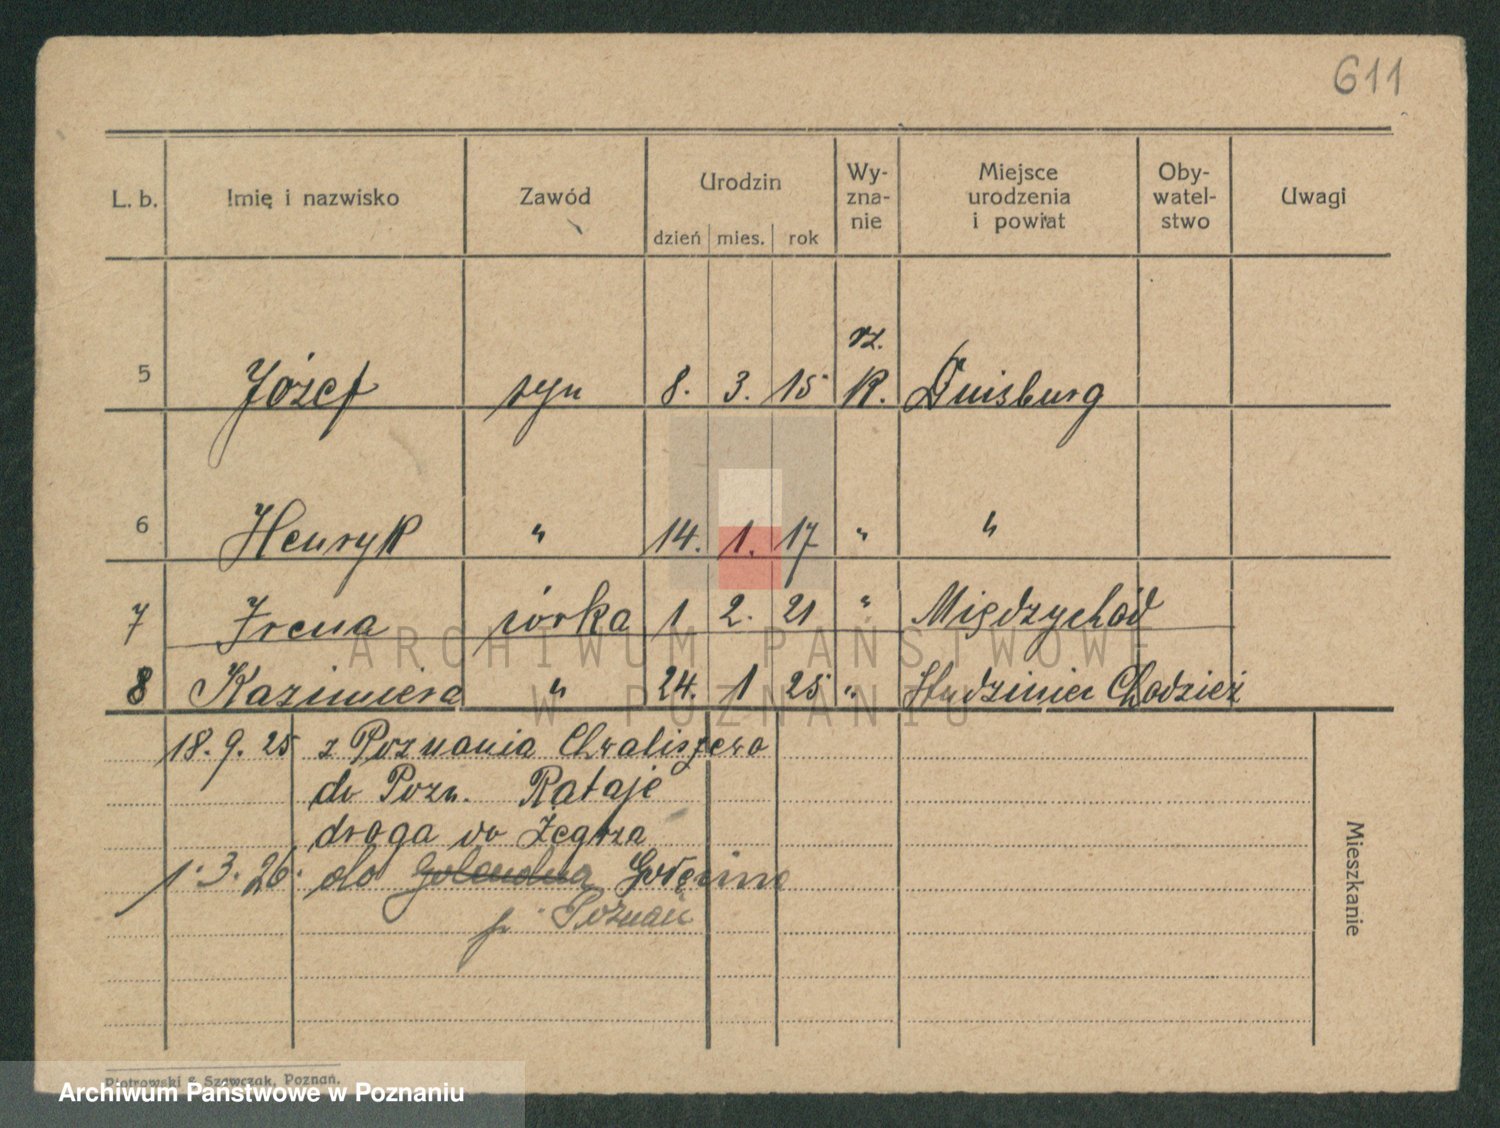 611
L. b. Imię i nazwisko Zawód Urodzin dzień mies. rok Wy-zna-nie Miejsce urodzenia i powiat Oby-watel-stwo Uwagi
rz.
5 Józef syn 8. 3. 15 K. Duisburg
6 Henryk " 14. 1. 17 " "
7 Irena córka 1 2. 21 " Międzychód
8 Kazimiera " 24. 1 25 " Chodzież
ARCHIWUM PAŃSTWOWE
W POZNANIU
18. 9. 25 z Poznania Chwaliszewo
do Pozn. Rataje
droga do Żegrza
1. 3. 26. do Golęcino
p. Poznań
Mieszkanie
Piotrowski & Szewczak, Poznań.
Archiwum Państwowe w Poznaniu